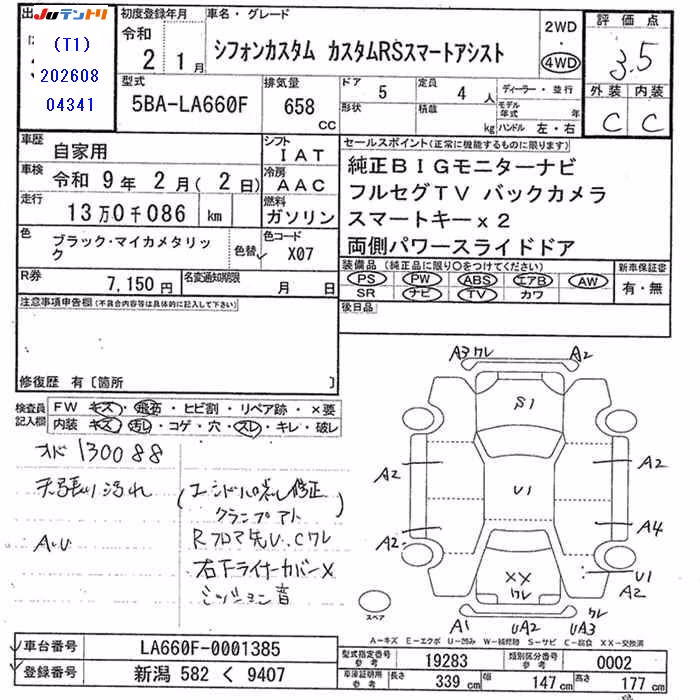 出 JUテントリ
(T1)
202608
04341
初度登録年月
令和
2年 1月
車名・グレード
シフォンカスタム カスタムRSスマートアシスト
2WD
・
4WD
評価点
3.5
外装 内装
C C
型式
5BA-LA660F
排気量
658 CC
ドア 5
形状
定員 4人
積載 kg
ディーラー・並行
モデル年式 年
ハンドル 左・右
車歴
自家用
シフト
IAT
車検 令和 9年 2月( 2日)
冷房
AAC
走行
13万0千086 km
燃料
ガソリン
色
ブラック・マイカメタリック
色替
色コード
X07
セールスポイント(正常に機能するものに限ります)
純正BIGモニターナビ
フルセグTV バックカメラ
スマートキーx2
両側パワースライドドア
R券
7,150円
名変通知期限 月 日
装備品(純正品に限り○をつけてください)
PS PW ABS エアB AW
SR ナビ TV カワ
新車保証書
有・無
注意事項申告欄(不具合内容等は具体的に記入して下さい)
後日品
修復歴 有〔箇所 〕
検査員記入欄
FW キズ・飛石・ヒビ割・リペア跡・×要
内装 キズ・汚レ・コゲ・穴・スレ・キレ・破レ
オド 130088
天張り汚れ
A.U
クランプアト
右下ライナーカバーX
ミッション音
A3 ワレ A2
S1
A2 A2
U1
A2 A4
XX
ワレ
U1
A2
ワレ
A1 UA2 UA3
スペア
A-キズ E-エクボ U-凹み W-補修跡 S-サビ C-腐食 XX-交換済
車台番号 LA660F-0001385
登録番号 新潟 582 く 9407
型式指定番号 参考 19283
類別区分番号 参考 0002
車庫証明用 参考 長さ 339 cm 幅 147 cm 高さ 177 cm